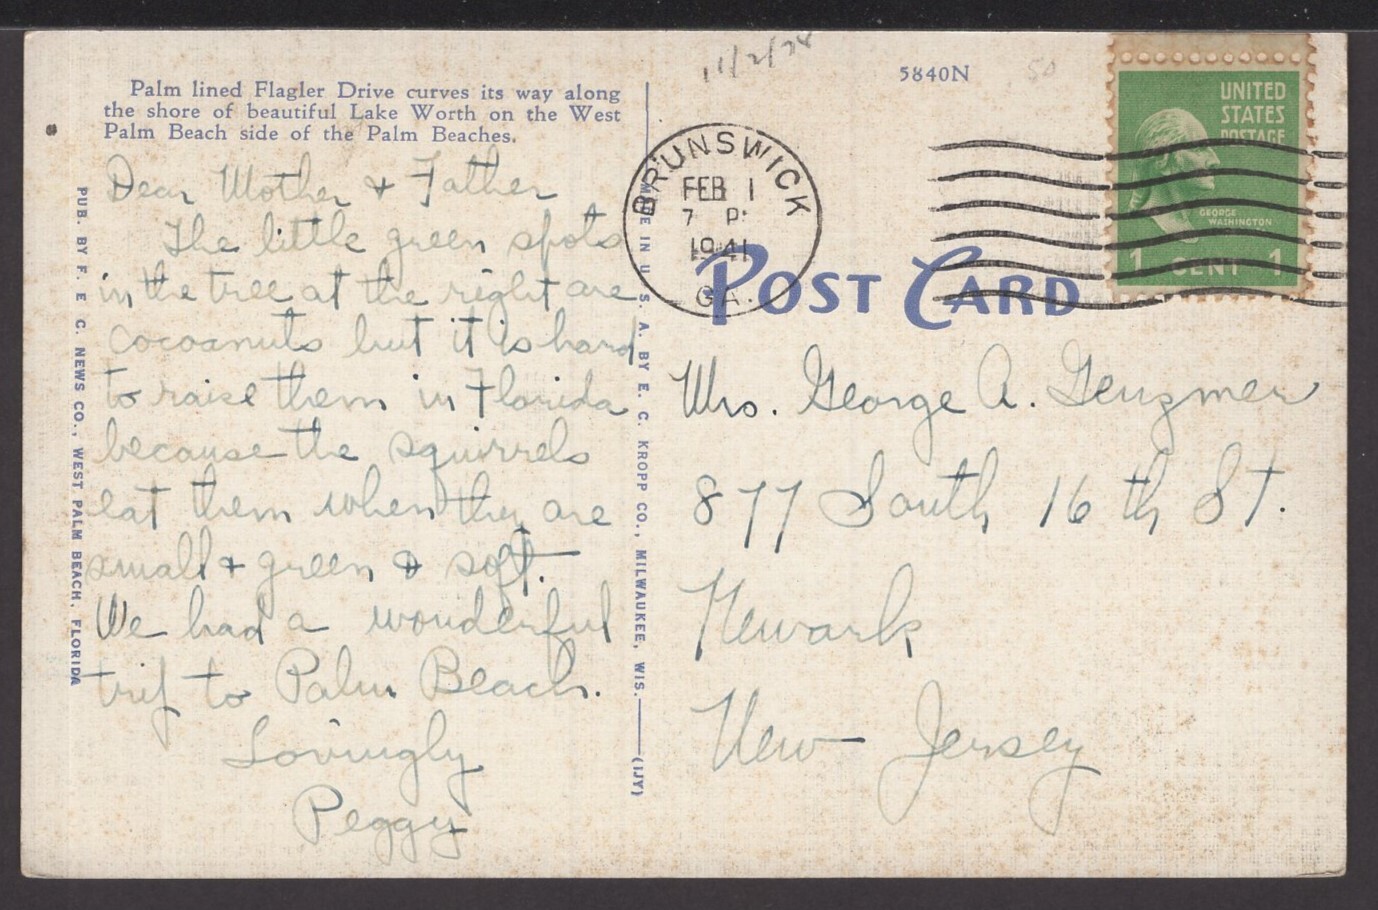 Palm lined Flagler Drive curves its way along
the shore of beautiful Lake Worth on the West
Palm Beach side of the Palm Beaches.
Dear Mother & Father
The little green spots
in the tree at the right are
cocoanuts but it is hard
to raise them in Florida
because the squirrels
eat them when they are
small & green & soft.
We had a wonderful
trip to Palm Beach.
Lovingly
Peggy
PUB. BY F. E. C. NEWS CO., WEST PALM BEACH, FLORIDA
MADE IN U. S. A. BY E. C. KROPP CO., MILWAUKEE, WIS. (IJY)
11/2/74
5840N
50
UNITED
STATES
POSTAGE
GEORGE
WASHINGTON
1 CENT 1
BRUNSWICK
FEB 1
7 P
1941
GA.
POST CARD
Mrs. George A. Genzmer
877 South 16th St.
Newark
New Jersey